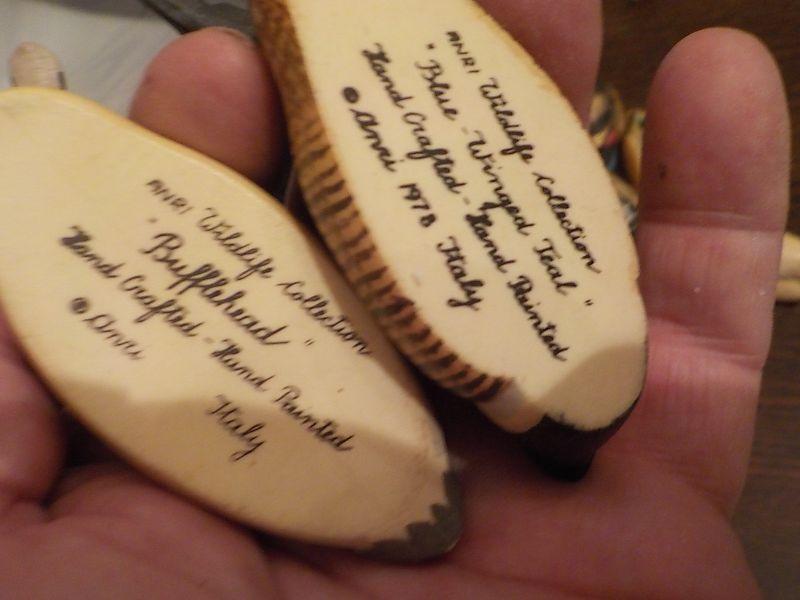 ANRI Wildlife Collection
"Bufflehead"
Hand Crafted - Hand Painted
© Anri Italy
ANRI Wildlife Collection
"Blue-Winged Teal"
Hand Crafted - Hand Painted
© Anri 1978 Italy